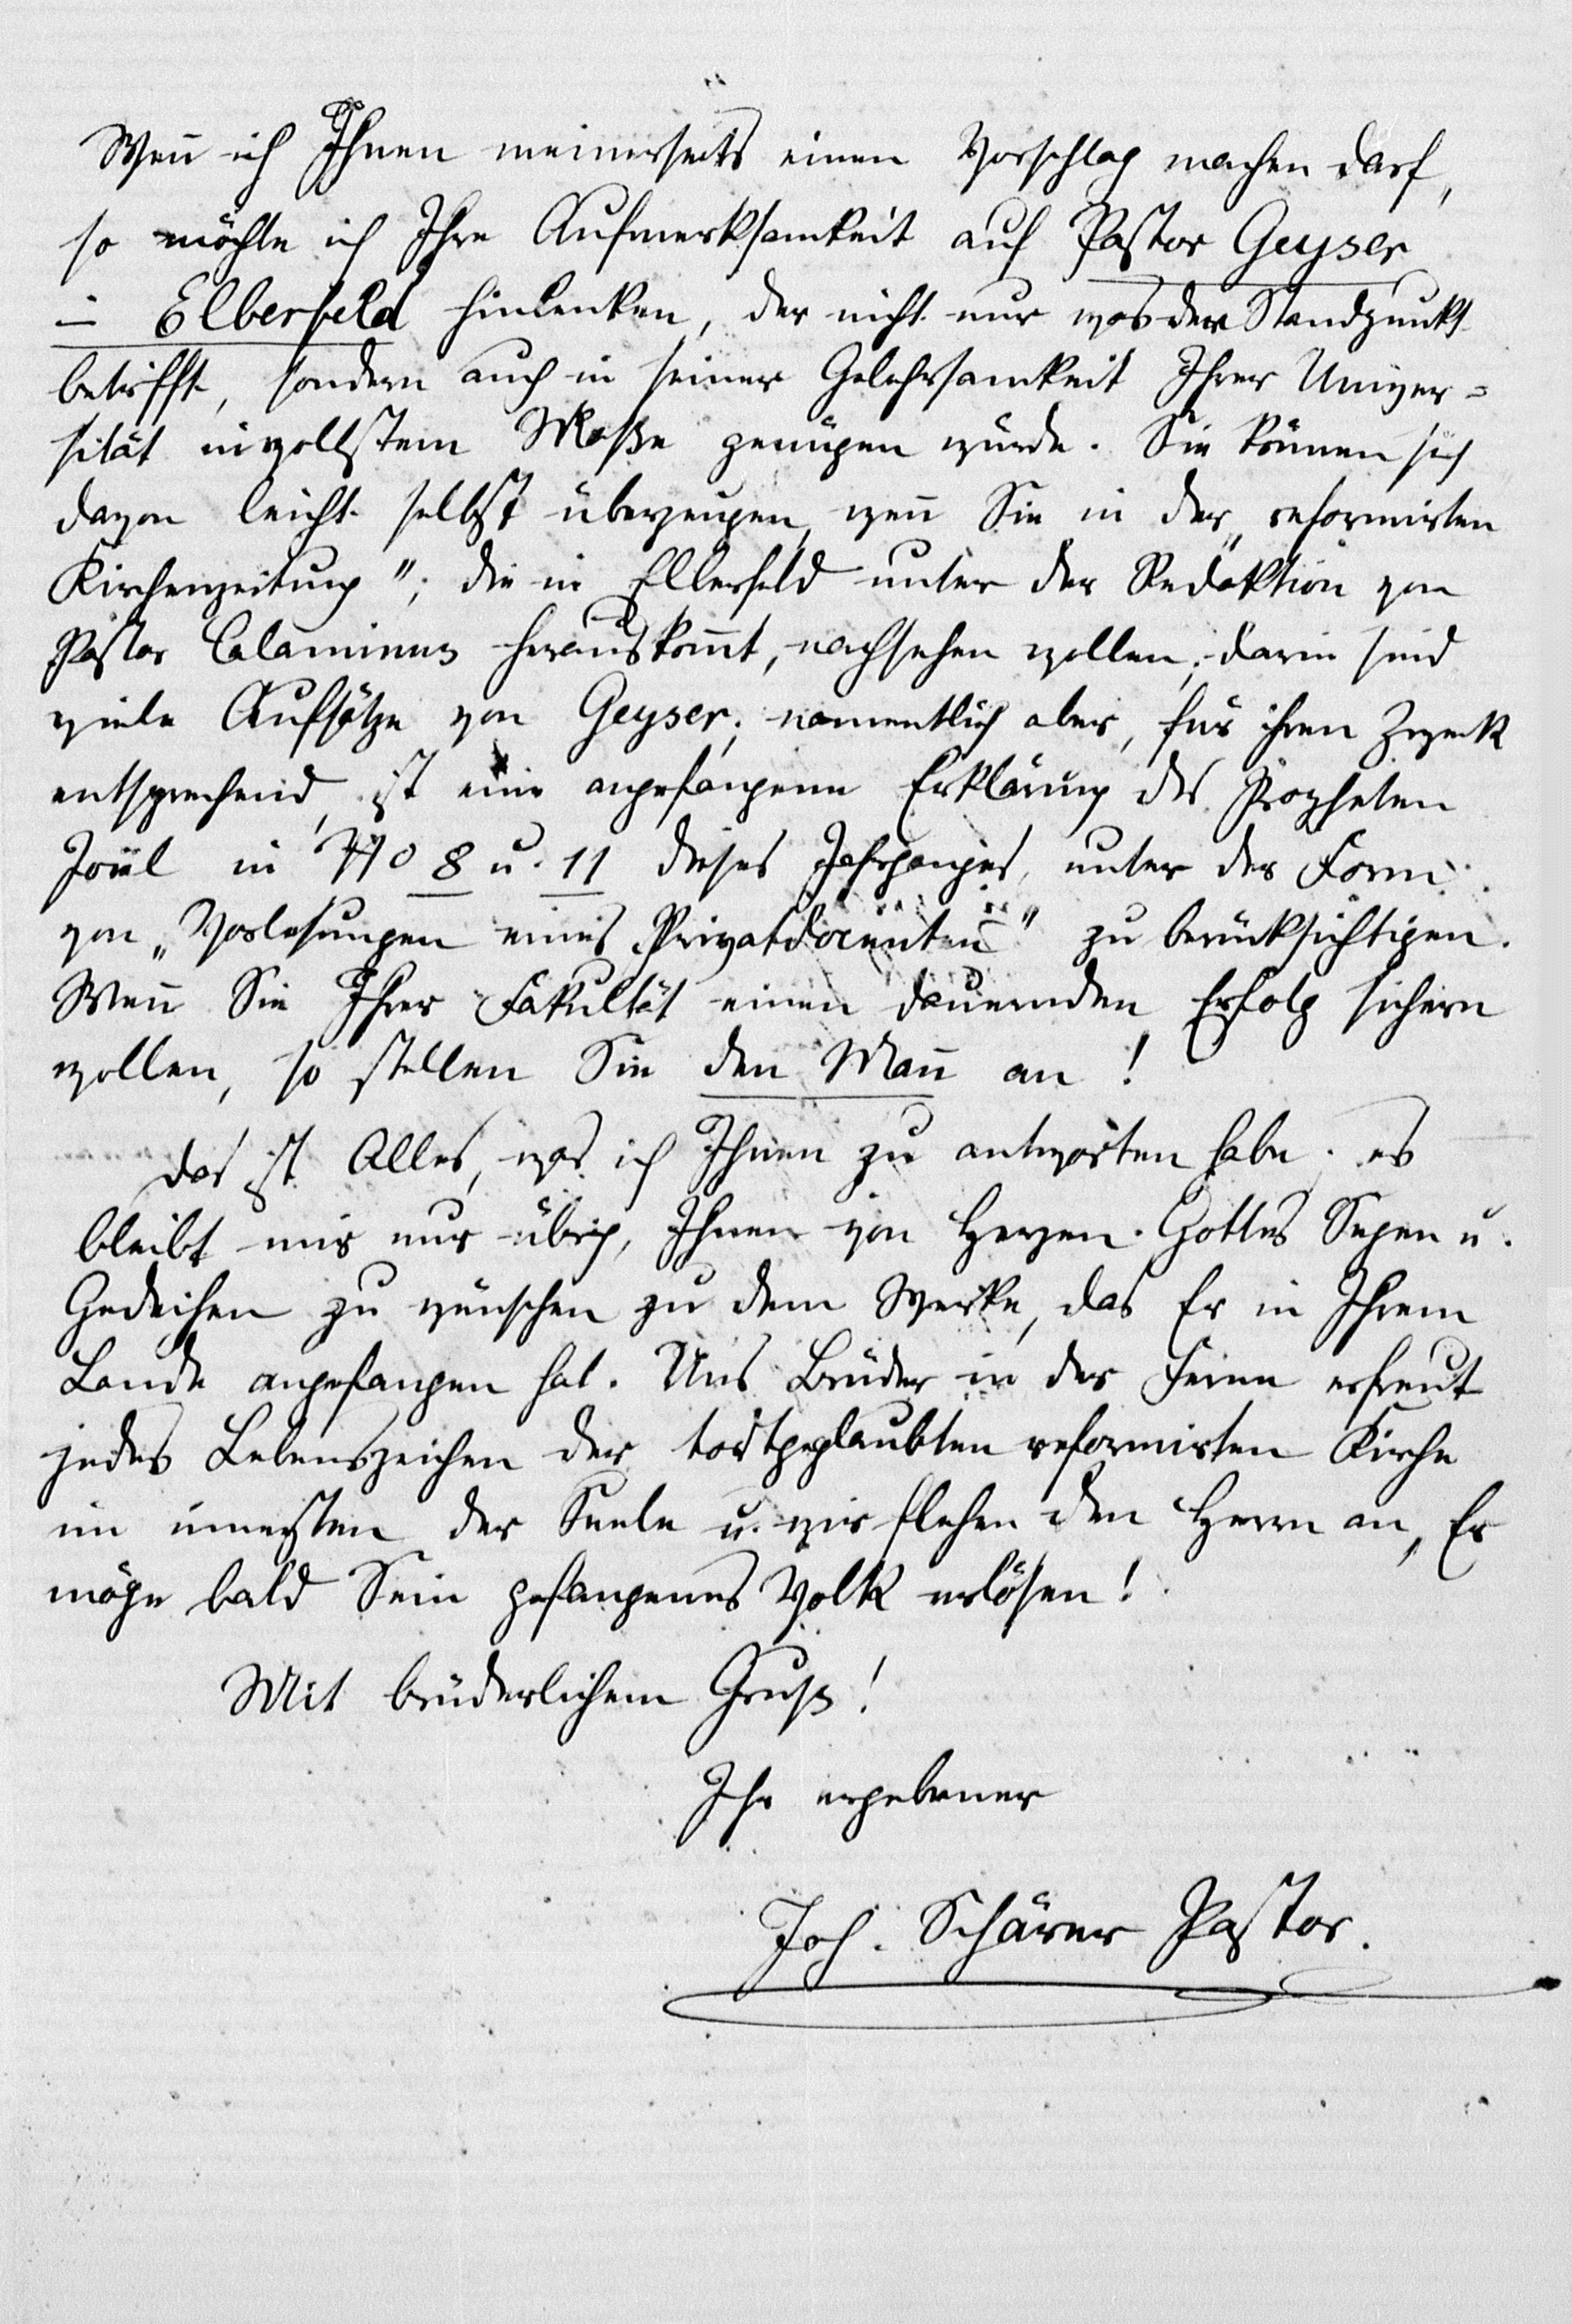 Wen̄ ich Ihnen meinerseits einen Vorschlag machen darf,
so möchte ich Ihre Aufmerksamkeit auf Pastor Geyser
in Elberfeld hinlenken, der nicht nur was den Standpunkt
betrifft, sondern auch in seiner Gelehrsamkeit Ihrer Univer=
sität in vollstem Maße genügen würde. Sie können sich
davon leicht selbst überzeugen, wen̄ Sie in der „reformirten
Kirchenzeitung", die in Elberfeld unter der Redaktion von
Pastor Calaminus herauskom̄t, nachsehen wollen; darin sind
viele Aufsätze von Geyser; namentlich aber, für ihren Zweck
entsprechend, ist eine angefangene Erklärung des Propheten
Joël in No 8 u. 11 dieses Jahrganges, unter der Form
von „Vorlesungen eines Privatdocenten" zu berücksichtigen.
Wen̄ Sie Ihrer Fakultät einen dauernden Erfolg sichern
wollen, so stellen Sie den Man̄ an!
Das ist Alles, was ich Ihnen zu antworten habe. es
bleibt mir nur übrig, Ihnen von Herzen Gottes Segen u.
Gedeihen zu wünschen zu dem Werke, das Er in Ihrem
Lande angefangen hat. Uns Brüder in der Ferne erfreut
jedes Lebenszeichen der todtgeglaubten reformirten Kirche
im innersten der Seele u. wir flehen den Herrn an, Er
möge bald Sein gefangenes Volk erlösen!
Mit brüderlichem Gruß!
Ihr ergebener
Joh. Schärer Pastor.